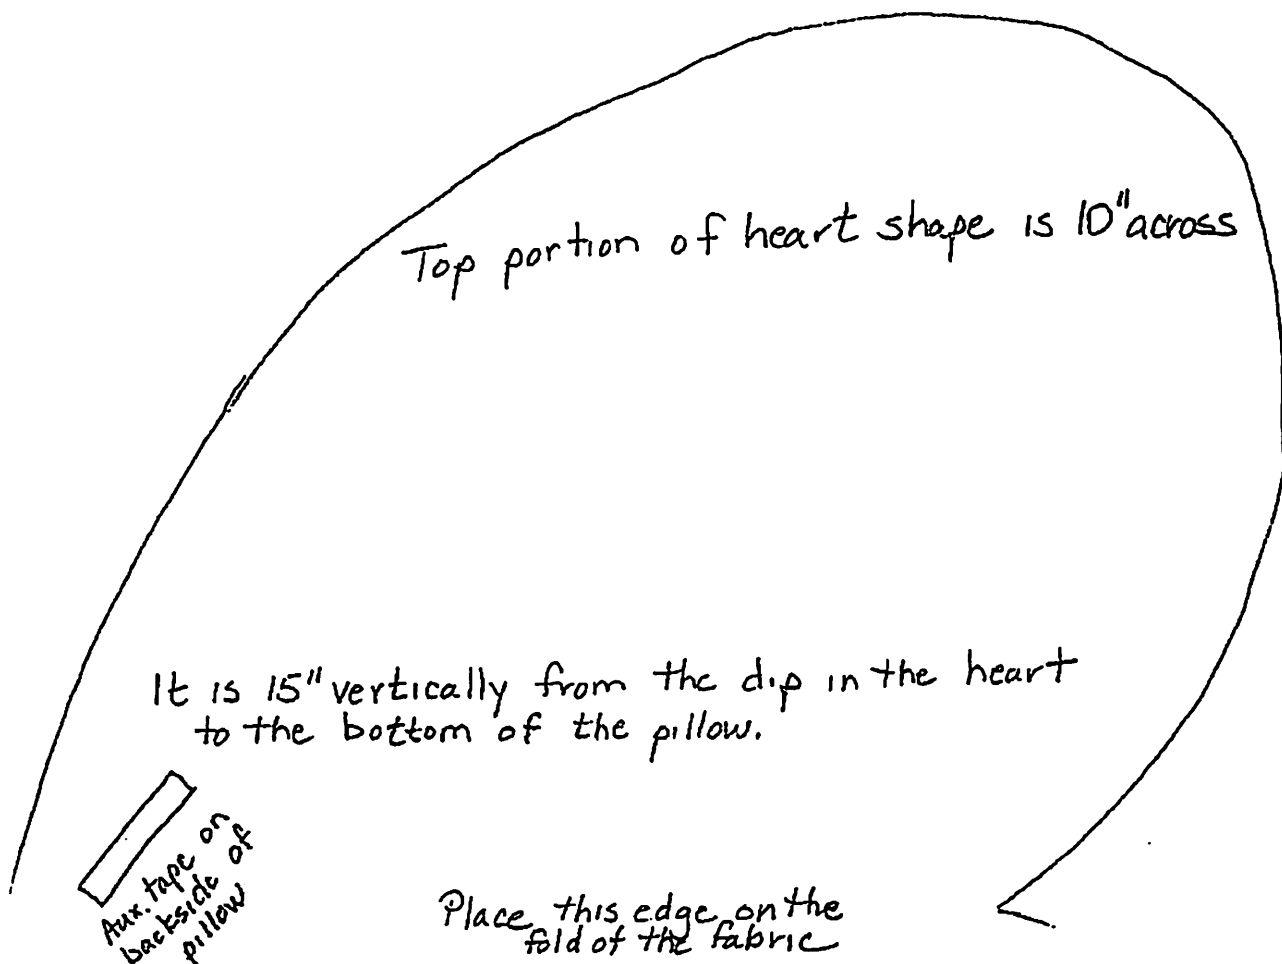 Top portion of heart shape is 10" across
It is 15" vertically from the dip in the heart
to the bottom of the pillow.
Aux. tape on
backside of
pillow
Place this edge on the
fold of the fabric